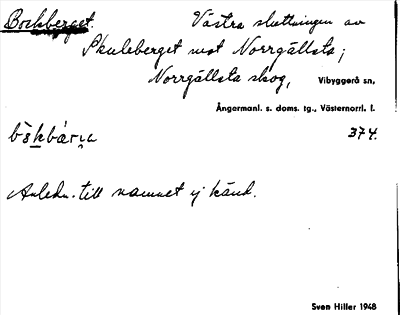 Bockberget. Västra sluttningen av
Skuleberget mot Norrgällsta;
Norrgällsta skog, Vibyggerå sn,
Ångermanl. s. doms. tg., Västernorrl. l.
374.
Anledn. till namnet ej känd.
Sven Hiller 1948